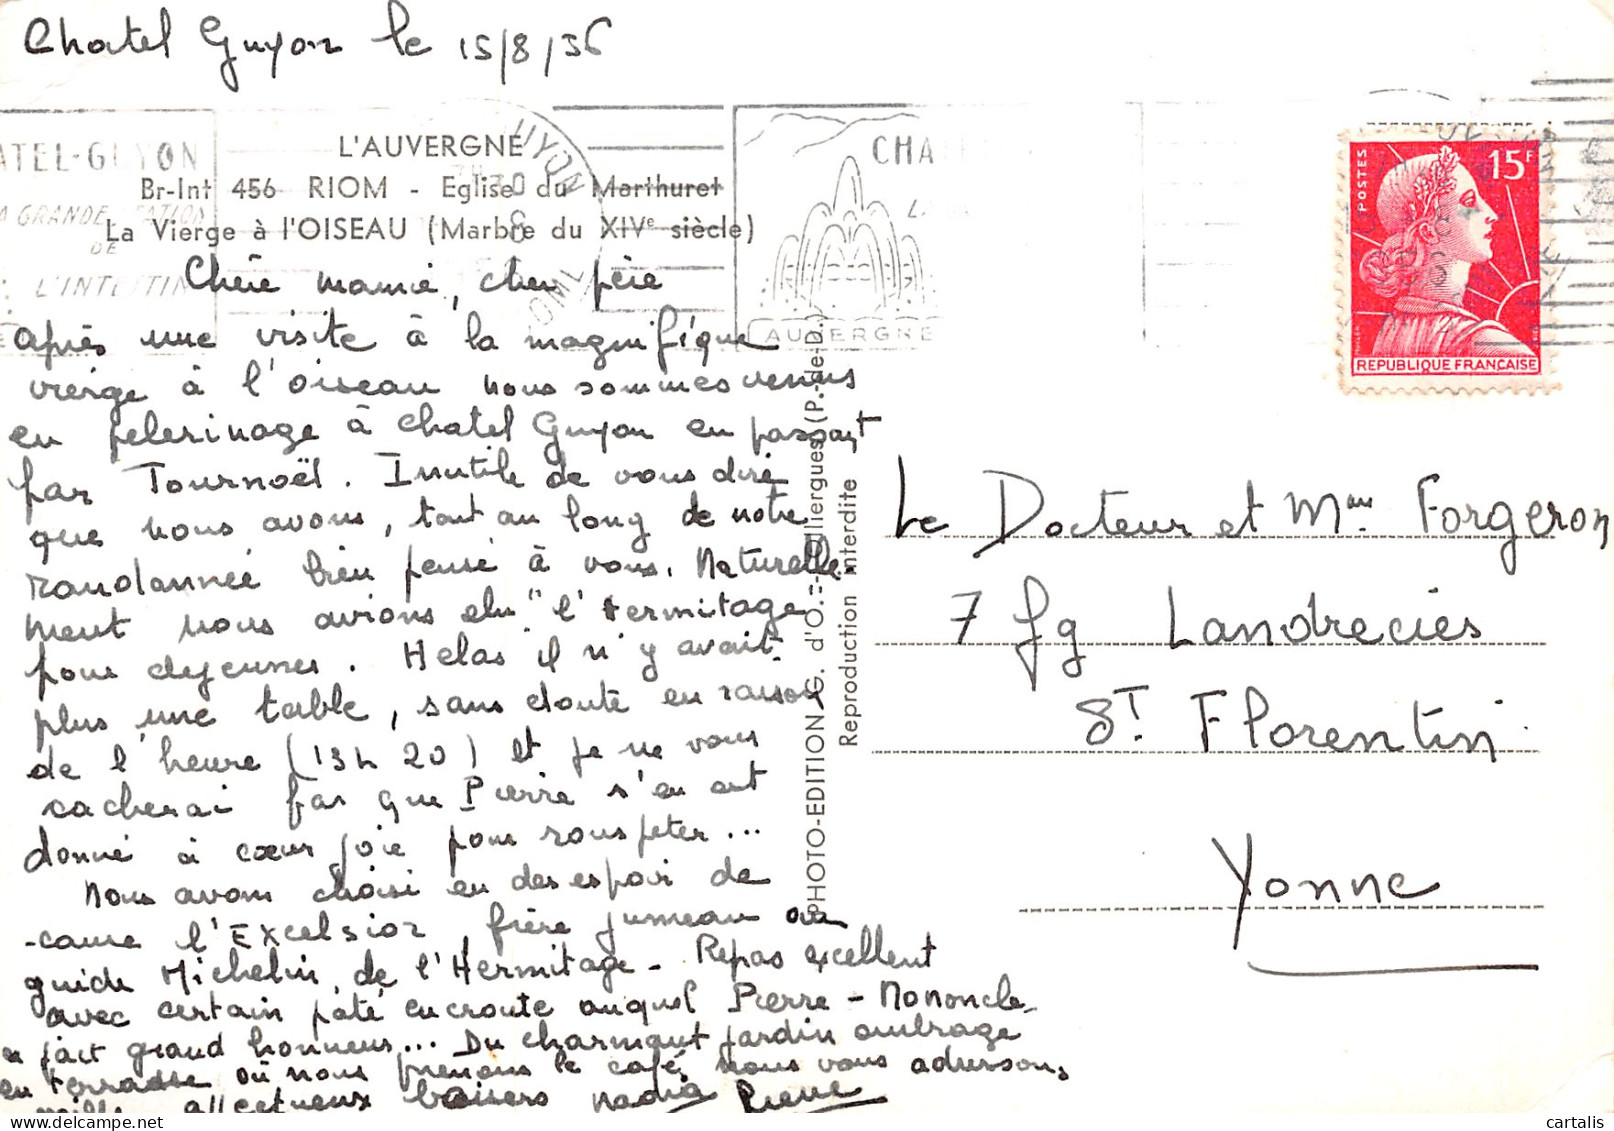 Chatel Guyon le 15/8/56
L'AUVERGNE
Br-Int 456 RIOM - Eglise du Marthuret
La Vierge à l'OISEAU (Marbre du XIVe siècle)
ATEL-GUYON
LA GRANDE STATION
DE
L'INTESTIN
CHA
AUVERGNE
POSTES
15F
REPUBLIQUE FRANÇAISE
Chère mamie, cher père
après une visite à la magnifique
vierge à l'oiseau nous sommes venus
en pelerinage à Chatel Guyon en passant
par Tournoël. Inutile de vous dire
que nous avons, tout au long de notre
randonnée bien pensé à vous. Naturelle-
ment nous avions elu "l'Hermitage
pour dejeuner. Helas il n'y avait
plus une table, sans doute en raison
de l'heure (13h 20) et je ne vous
cacherai pas que Pierre s'en est
donné à cœur joie pour rouspeter...
Nous avons choisi en desespoir de
-cause l'Excelsior frère jumeau au
guide Michelin, de l'Hermitage - Repas excellent
avec certain pâté en croute auquel Pierre - Nononcle
a fait grand honneur... Du charmant jardin ombragé
en terrasse où nous prenons le café, nous vous adressons
affectueux baisers Nadia Pierre
PHOTO-EDITION G. d'O. - llergues (P.-de-D.)
Reproduction interdite
Le Docteur et Mme Forgeron
7 fg Landrecies
St Florentin
Yonne
cartalis